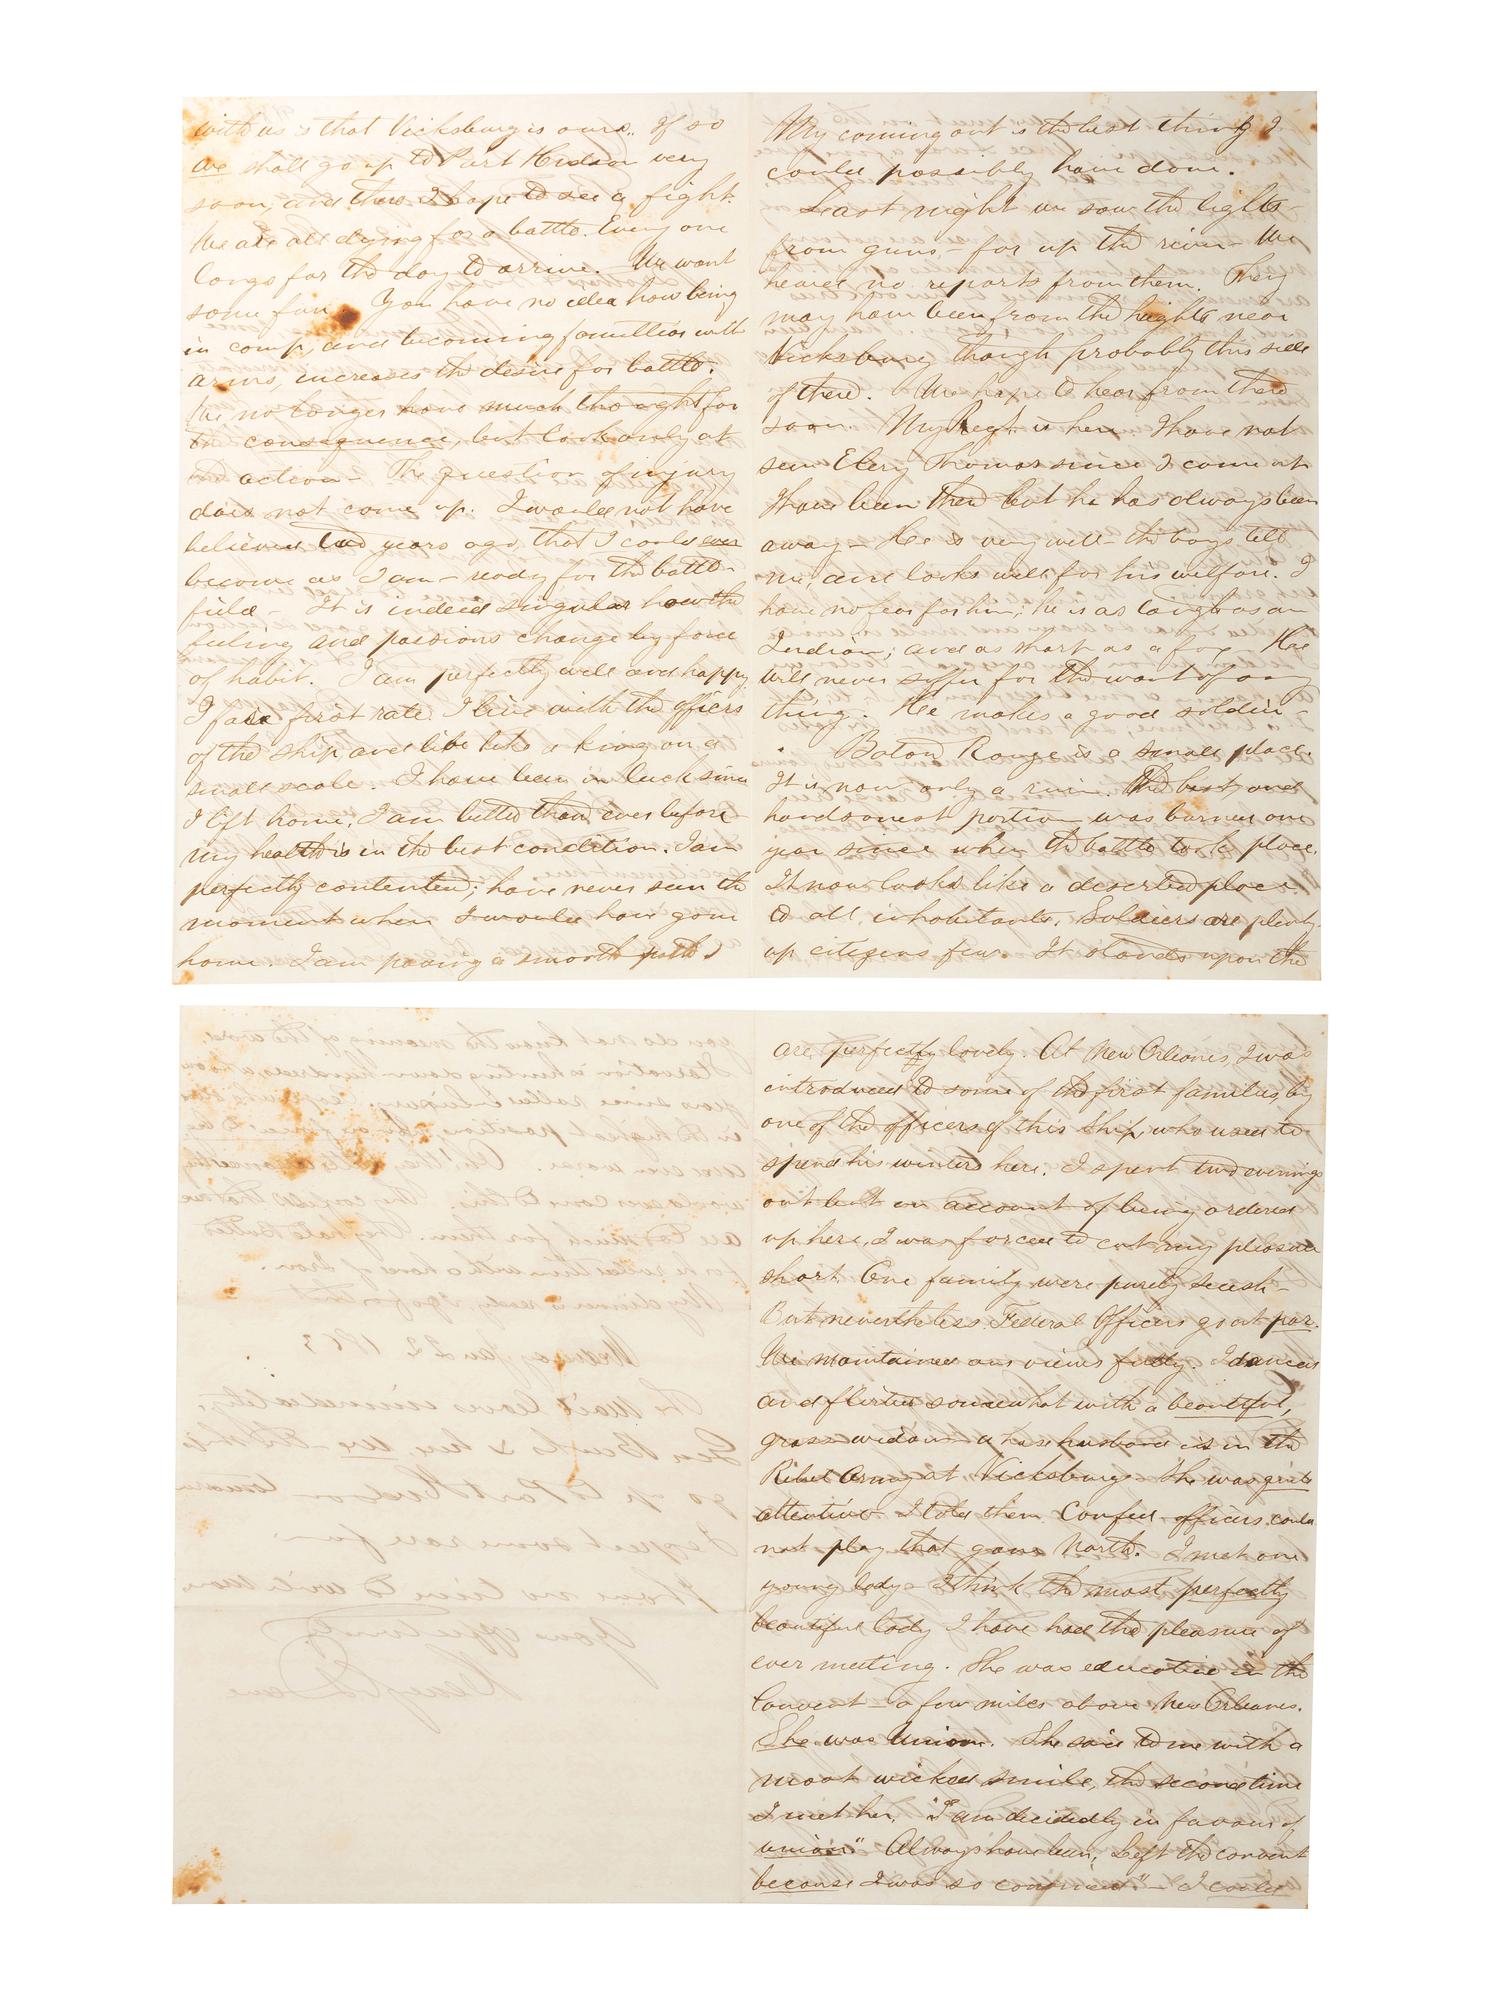 with us is that Vicksburg is ours. If so
we shall go up to Port Hudson very
soon, and there I hope to see a fight.
We are all dying for a battle. Every one
longs for the day to arrive. We want
some fun. You have no idea how being
in camp, and becoming familliar with
arms, increases the desire for battle.
We no longer have much thought for
the consequence, but look only at
the action - The question of injury
does not come up. I would not have
believed two years ago, that I could ever
become as I am - ready for the battle-
field - It is indeed singular how the
feeling and passions change by force
of habit. I am perfectly well and happy
I fare first rate. I live with the officers
of the ship, and live like a king on a
small scale. I have been in luck since
I left home. I am better than ever before -
my health is in the best condition. I am
perfectly contented; have never seen the
moment when I would have gone
home. I am paving a smooth path &
My coming out is the best thing I
could possibly have done.
Last night we saw the lights
from guns - far up the river - We
heard no reports from them. They
may have been from the heights near
Vicksburg though probably this side
of there. We hope to hear from there
soon. My Regt. is here. I have not
seen Elery Thomas since I came out
I have been there but he has always been
away - He is very well - the boys tell
me, and looks well for his welfare. I
have no fear for him; he is as tough as an
Indian; and as smart as a fox - He
will never suffer for the want of any
thing. He makes a good soldier -
Baton Rouge is a small place.
It is now only a ruin. The best and
handsomest portion was burned one
year since when the battle took place.
It now looks like a deserted place
to all inhabitants. Soldiers are plenty
up citizens few. It stands upon the
are perfectly lovely. At New Orleans, I was
introduced to some of the first families, by
one of the officers of this Ship, who used to
spend his winters here. I spent two evenings
out but on account of being ordered
up here, I was forced to cut my pleasure
short. One family were purely secesh -
But nevertheless Federal Officers go at par.
We maintained our views fully. I danced
and flirted somewhat with a beautiful,
grass widow - whose husband is in the
Rebel Army at Vicksburg - She was quite
attentive - I told them Confed officers could
not play that game North. I met one
young lady - I think the most perfectly
beautiful lady I have had the pleasure of
ever meeting. She was educated in the
Convent - a few miles above New Orleans.
She was Union. She said to me with a
most wicked smile, the second time
I met her, "I am decidedly in favour of
union" Always have been, Left the convent
because I was so confined" - I could
you do not know the meaning of the word.
Starvation is hunting down hundreds, who a few
years since rolled in luxury.
in the highest position, now are forced to
are even worse.
would ever come to this. We confess that we
are too much for them. They hate Butler
for he ruled them with a hand of Iron.
My dinner is ready, I go for that
Wednesday Jan 22 1863
The Mail leaves immediately,
Gen Banks is here, we let this
go up to Port Hudson
I expect some rare fun
Have no time to write more
Yours affectionately